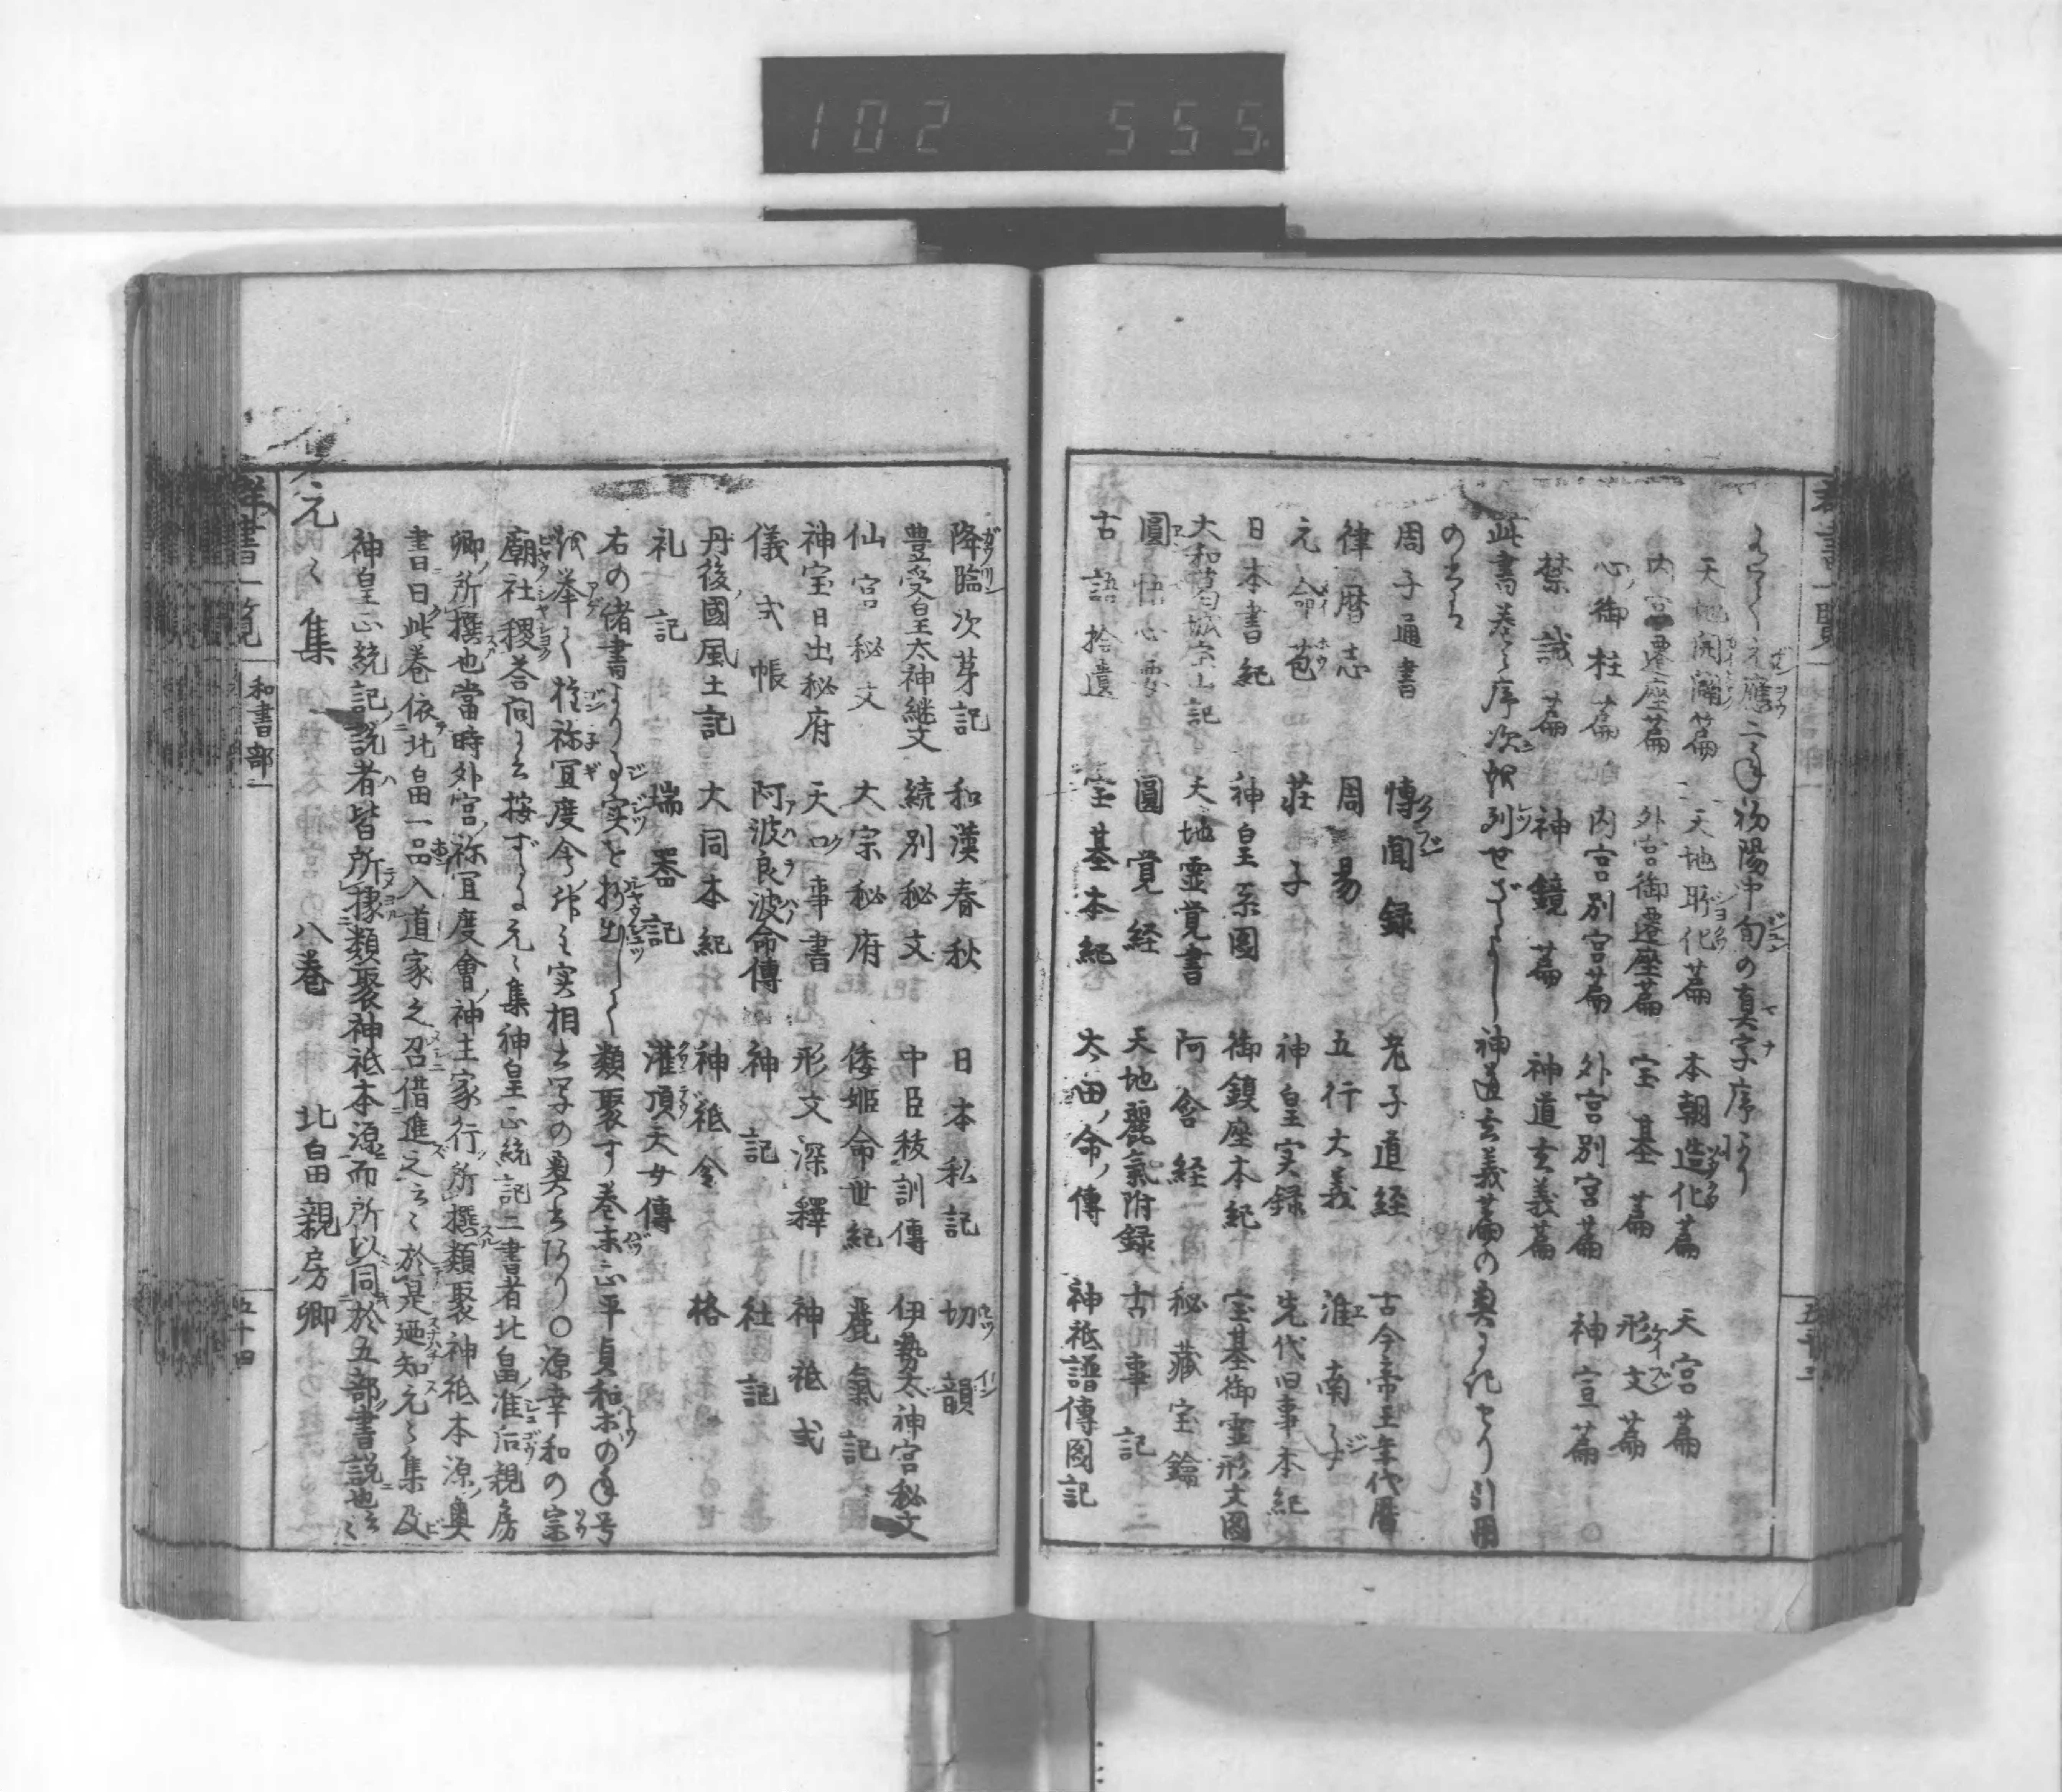 102 555
元應二年初陽中旬の真字序あり
天地開闢篇 天地所化篇 本朝造化篇 天宮篇
内宮遷座篇 外宮御遷座篇 宝基篇 形文篇
心御柱篇 内宮別宮篇 外宮別宮篇 神宣篇
禁誡篇 神鏡篇 神道玄義篇
此書巻之序次 列せざるよし神道玄義篇の奥に 引用
のもの
周子通書 博聞録 老子道経 古今帝王年代暦
律暦志 周易 五行大義 淮南子
元命苞 荘子 神皇実録 先代旧事本紀
日本書紀 神皇系圖 御鎮座本紀 宝基御霊形文圖
大和葛城宝山記 天地霊覚書 阿含経 秘蔵宝鑰
圓悟心要 圓覚経 天地麗氣附録 古事記
古語拾遺 宝基本紀 太田命傳 神祇譜傳圖記
群書一覧 和書部一 五十三
降臨次芽記 和漢春秋 日本私記 切韻
豊受皇太神継文 続別秘文 中臣祓訓傳 伊勢太神宮秘文
仙宮秘文 大宗秘府 倭姫命世紀 麗氣記
神宝日出秘府 天口事書 形文深釋 神祇式
儀式帳 阿波良波命傳 神記 社記
丹後國風土記 大同本紀 神祇令 格
礼記 瑞器記 灌頂天女傳
右の諸書より事実を抄出して類聚す巻末正平貞和ホの年号
挙て 祢宜度會 実相 写の奥書あり〇源幸和の宗
廟社稷答問に云按ずるに元〻集神皇正統記二書者北畠准后親房
卿所撰也當時外宮祢宜度會神主家行所撰類聚神祇本源奥
書曰此巻依北畠一品入道家之召借進之云〻於是廼知元〻集及
神皇正統記説者皆所據類聚神祇本源而所以同於五部書説也云〻
元〻集 八巻 北畠親房卿
群書一覧 和書部一 五十四